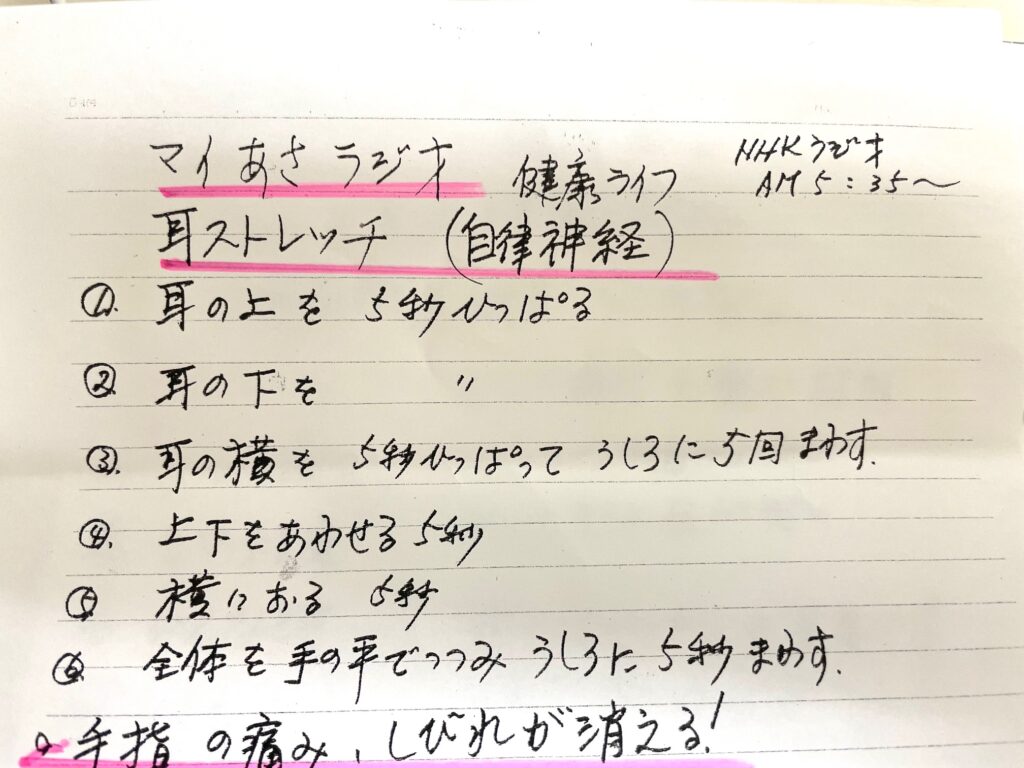 マイあさラジオ 健康ライフ NHKラジオ
AM5:35〜
耳ストレッチ (自律神経)
①. 耳の上を 5秒ひっぱる
②. 耳の下を 〃
③. 耳の横を 5秒ひっぱって うしろに5回まわす.
④. 上下をあわせる 5秒
⑤ 横におる 5秒
⑥. 全体を手の平でつつみ うしろに 5秒まわす.
手指の痛み、しびれが消える!